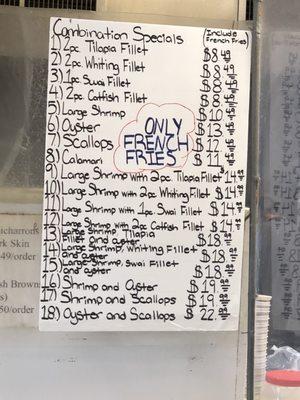 Combination Specials
(Include French Fries)
1) 2pc Tilapia Fillet $8.49
2) 2pc. Whiting Fillet $8.49
3) 1pc Swai Fillet $8.49
4) 2pc Catfish Fillet $8.49
5) Large Shrimp $10
6) Oyster $13
7) Scallops $12
8) Calamari $11
ONLY
FRENCH
FRIES
9) Large Shrimp with 2pc Tilapia Fillet $14
10) Large Shrimp with 2pc Whiting Fillet $14
11) Large Shrimp with 1pc. Swai Fillet $14
12) Large Shrimp with 2pc Catfish Fillet $14
13) Large Shrimp, Tilapia
Fillet and oyster $18
14) Large Shrimp, Whiting Fillet
and oyster $18
15) Large Shrimp, swai Fillet
and oyster $18
16) Shrimp and Oyster $19
17) Shrimp and Scallops $19
18) Oyster and Scallops $22
charrons
rk Skin
49/order
sh Browns
50/order